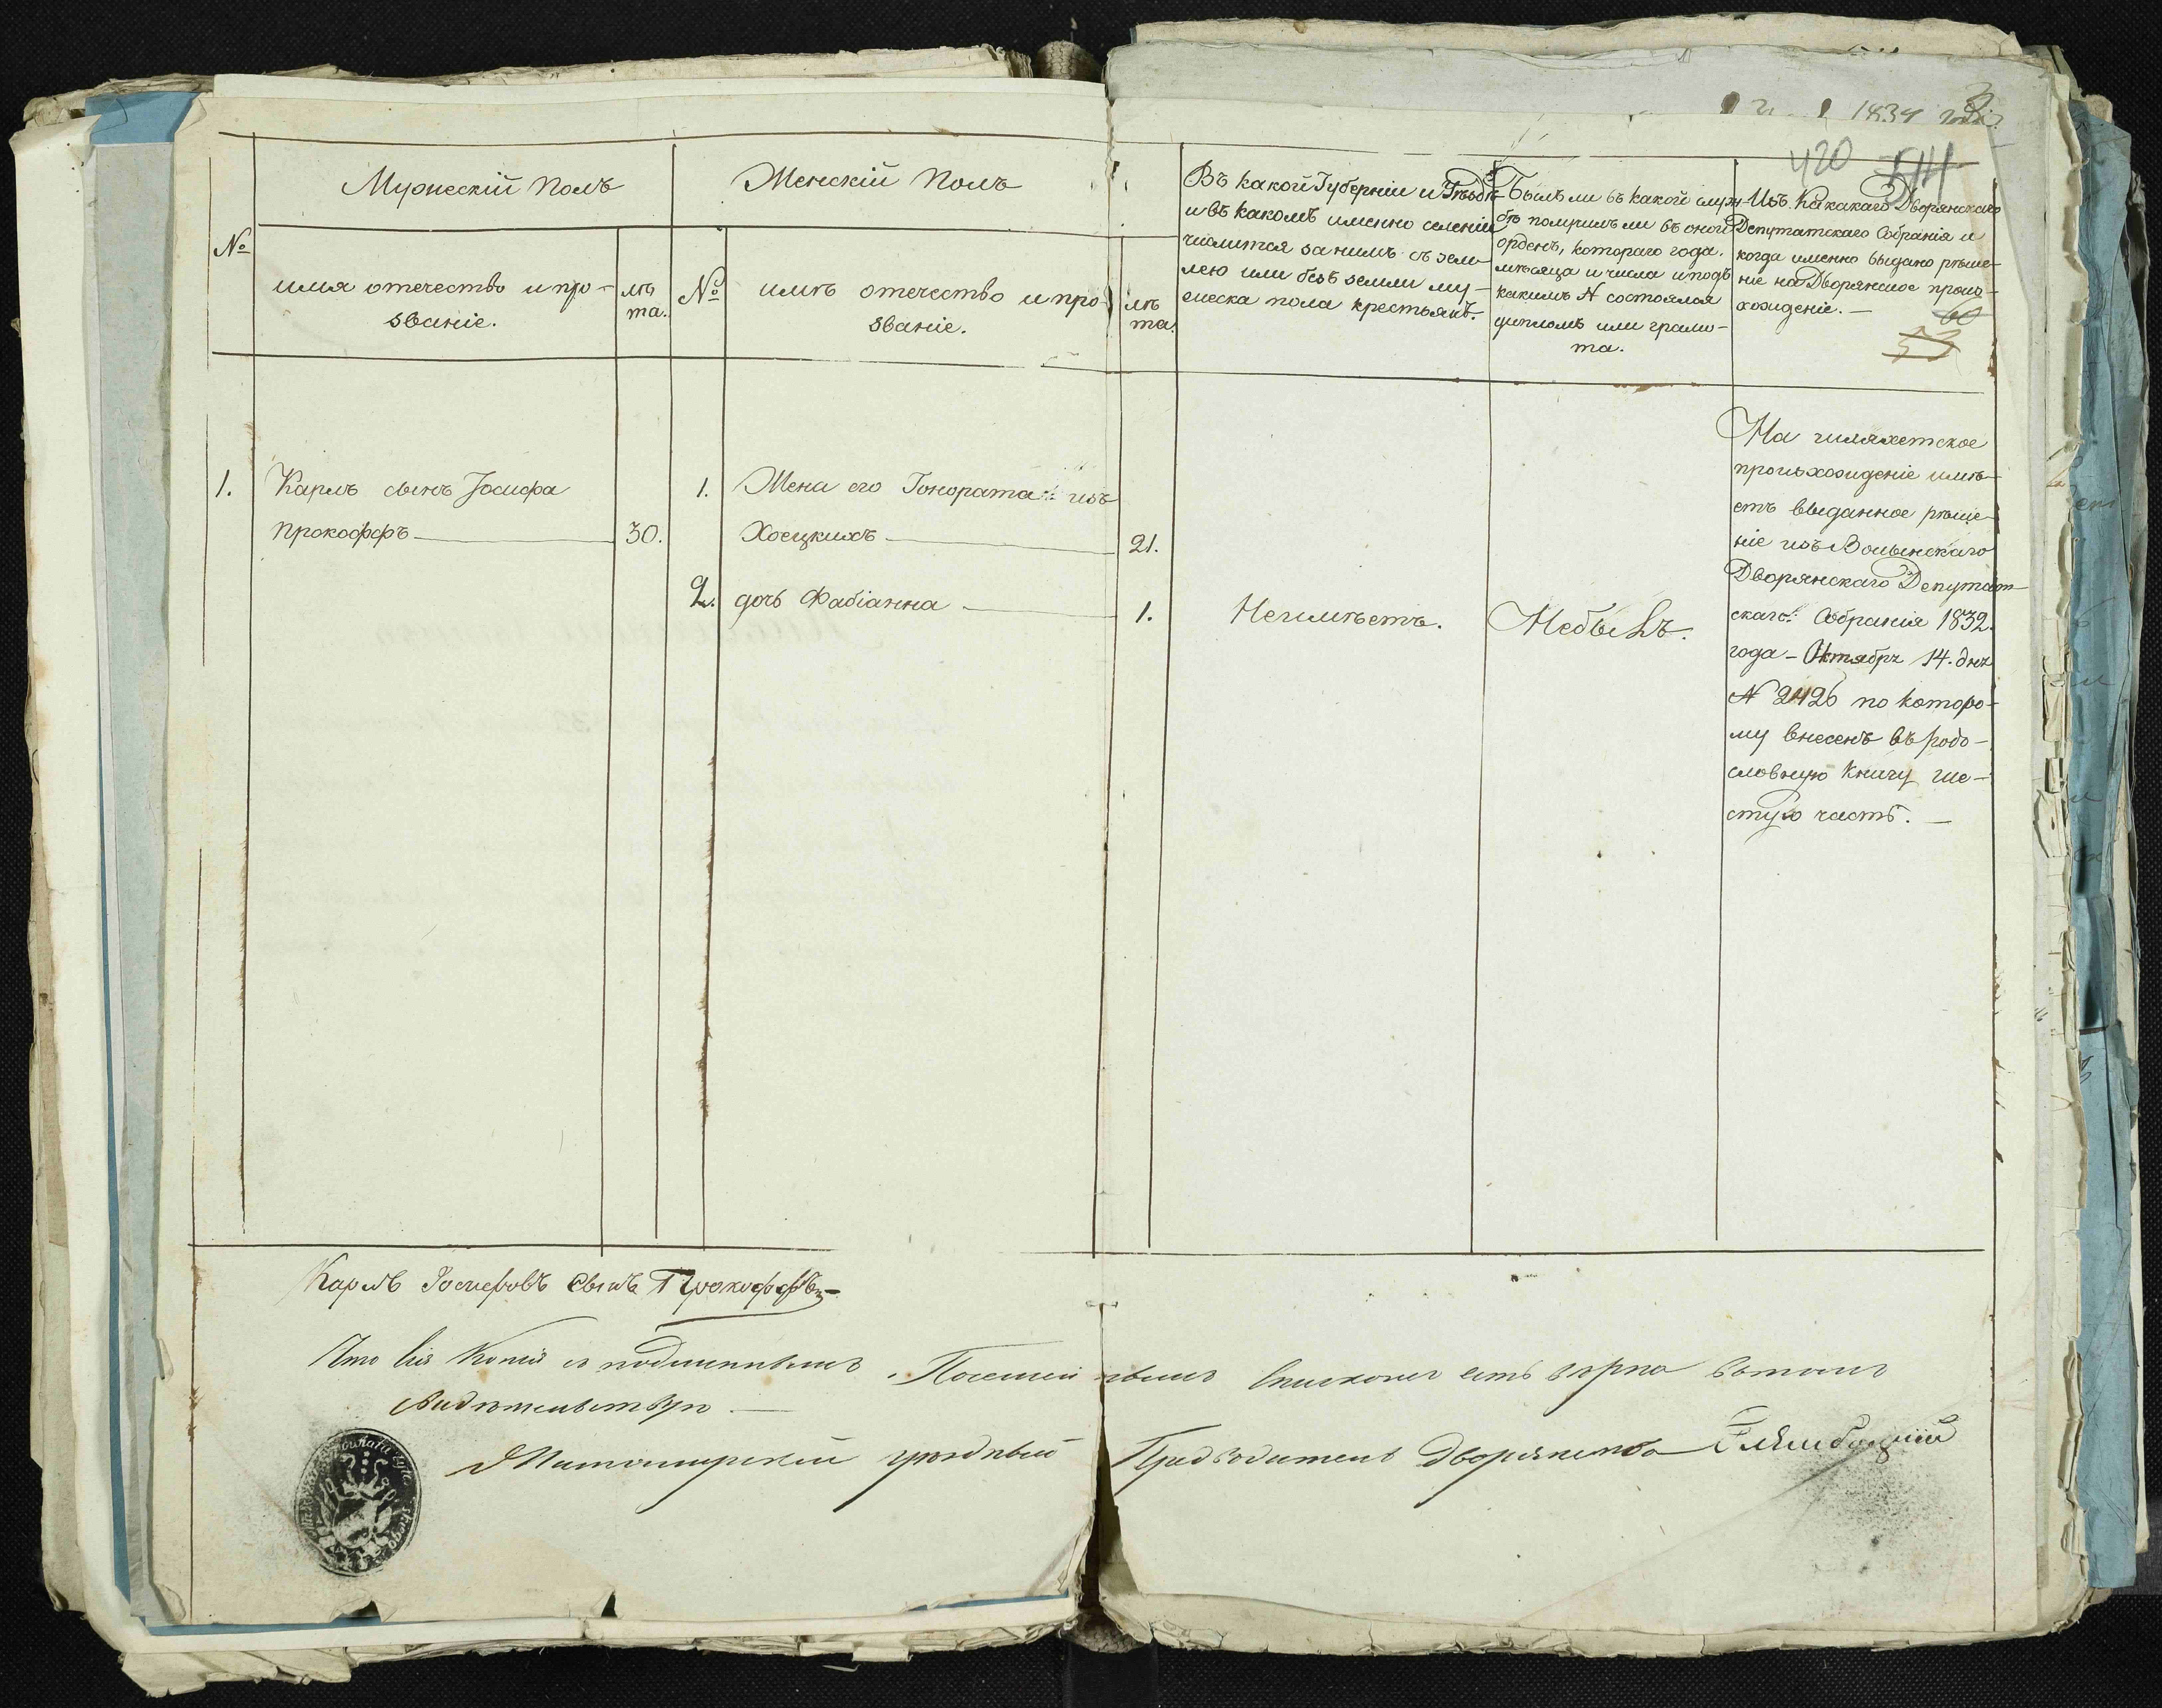 1834 года
3
420
Мужескій Полъ
Женскій Полъ
№
имя отечество и про-
званіе.
лѣ
та.
№
имѣ отечество и про-
званіе.
лѣ
та.
Въ какой Губерніи и Уѣздѣ
и въ какомъ именно селеніи
числится за нимъ съ зем-
лею или безъ земли му-
жеска пола крестьянъ.
Былъ ли въ какой служ-
бѣ получилъ ли въ оной
орденъ, котораго года.
мѣсяца и числа и подъ
какимъ № состоялся
дипломъ или грамо-
та.
Изъ Какакаго Дворянскаго
Депутатскаго Собранія и
когда именно выдано рѣше-
ніе на Дворянское проис-
хожденіе. —
60
1. Карлъ сынъ Іосифа
Прокоффъ 30.
1. Жена его Гонората изъ
Хоецкихъ 21.
2. дочъ Фабіанна 1.
Неимѣетъ.
Небылъ.
На шляхетское
происхожденіе имѣ-
етъ выданное рѣше-
ніе изъ Волынскаго
Дворянскаго Депутат-
скаго Собранія 1832.
года Октября 14. дня
№ 2426 по которо-
му внесенъ въ родо-
словную Книгу ше-
стую часть. —
Карлъ Іосифовъ Сынъ Прокоффъ
Что сія Копія съ подлиннымъ Посемейнымъ Спискомъ есть вѣрна въ томъ
свидѣтельствую. —
Житомирскій уѣздный Предводитель Дворянства